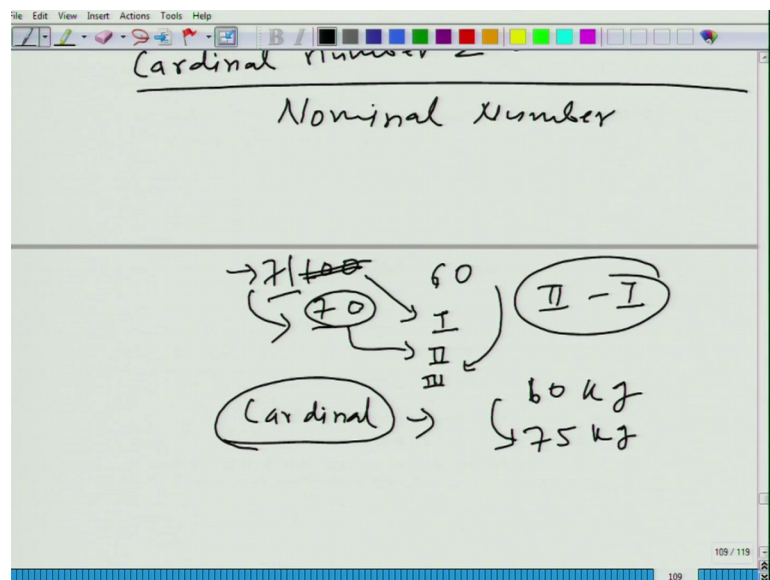 File Edit View Insert Actions Tools Help
B I
Cardinal Number
Nominal Number
71 100 60
70 I II - I
II
III
60 kg
Cardinal
75 kg
109 / 119
109